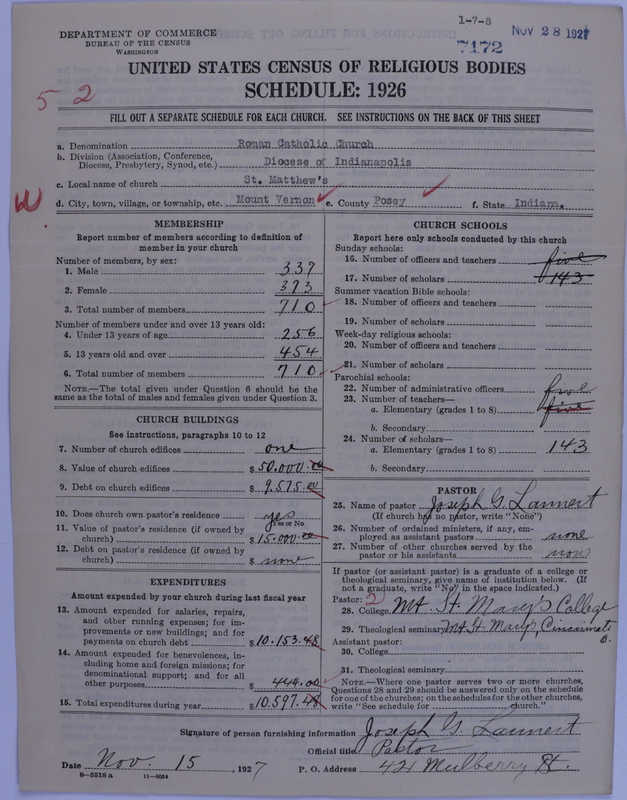 1-7-8
NOV 28 1927
7172
DEPARTMENT OF COMMERCE
BUREAU OF THE CENSUS
WASHINGTON
UNITED STATES CENSUS OF RELIGIOUS BODIES
SCHEDULE: 1926
5 2
FILL OUT A SEPARATE SCHEDULE FOR EACH CHURCH. SEE INSTRUCTIONS ON THE BACK OF THIS SHEET
a. Denomination Roman Catholic Church
b. Division (Association, Conference, Diocese, Presbytery, Synod, etc.) Diocese of Indianapolis
c. Local name of church St. Matthew's
W.
d. City, town, village, or township, etc. Mount Vernon e. County Posey f. State Indiana.
MEMBERSHIP
Report number of members according to definition of
member in your church
Number of members, by sex:
1. Male 337
2. Female 373
3. Total number of members 710
Number of members under and over 13 years old:
4. Under 13 years of age 256
5. 13 years old and over 454
6. Total number of members 710
NOTE.—The total given under Question 6 should be
same as the total of males and females given under Question 3.
CHURCH BUILDINGS
See instructions, paragraphs 10 to 12
7. Number of church edifices one
8. Value of church edifices $50.000.00
9. Debt on church edifices $9.575.00
10. Does church own pastor's residence yes
Yes or No
11. Value of pastor's residence (if owned by
church) $15.000.00
12. Debt on pastor's residence (if owned by
church) $ none
EXPENDITURES
Amount expended by your church during last fiscal year
13. Amount expended for salaries, repairs,
and other running expenses; for im-
provements or new buildings; and for
payments on church debt $10.153.48
14. Amount expended for benevolences, in-
cluding home and foreign missions; for
denominational support; and for all
other purposes $444.00
15. Total expenditures during year $10.597.48
CHURCH SCHOOLS
Report here only schools conducted by this church
Sunday schools:
16. Number of officers and teachers five
17. Number of scholars 143
Summer vacation Bible schools:
18. Number of officers and teachers
19. Number of scholars
Week-day religious schools:
20. Number of officers and teachers
21. Number of scholars
Parochial schools:
22. Number of administrative officers five
23. Number of teachers—
a. Elementary (grades 1 to 8) five
b. Secondary
24. Number of scholars—
a. Elementary (grades 1 to 8) 143
b. Secondary
PASTOR
25. Name of pastor Joseph G. Lannert
(If church has no pastor, write "None")
26. Number of ordained ministers, if any, em-
ployed as assistant pastors none
27. Number of other churches served by the
pastor or his assistants none
If pastor (or assistant pastor) is a graduate of a college or
theological seminary, give name of institution below. (If
not a graduate, write "No" in the space indicated.)
Pastor: 2
28. College Mt St. Mary's College
29. Theological seminary Mt St. Mary's, Cincinnati
O.
Assistant pastor:
30. College
31. Theological seminary
NOTE.—Where one pastor serves two or more churches,
Questions 28 and 29 should be answered only on the schedule
for one of the churches; on the schedules for the other churches,
write "See schedule for church."
Signature of person furnishing information Joseph G. Lannert
Official title Pastor
Date Nov. 15, 1927 P. O. Address 421 Mulberry St.
8—5518a 11—9034